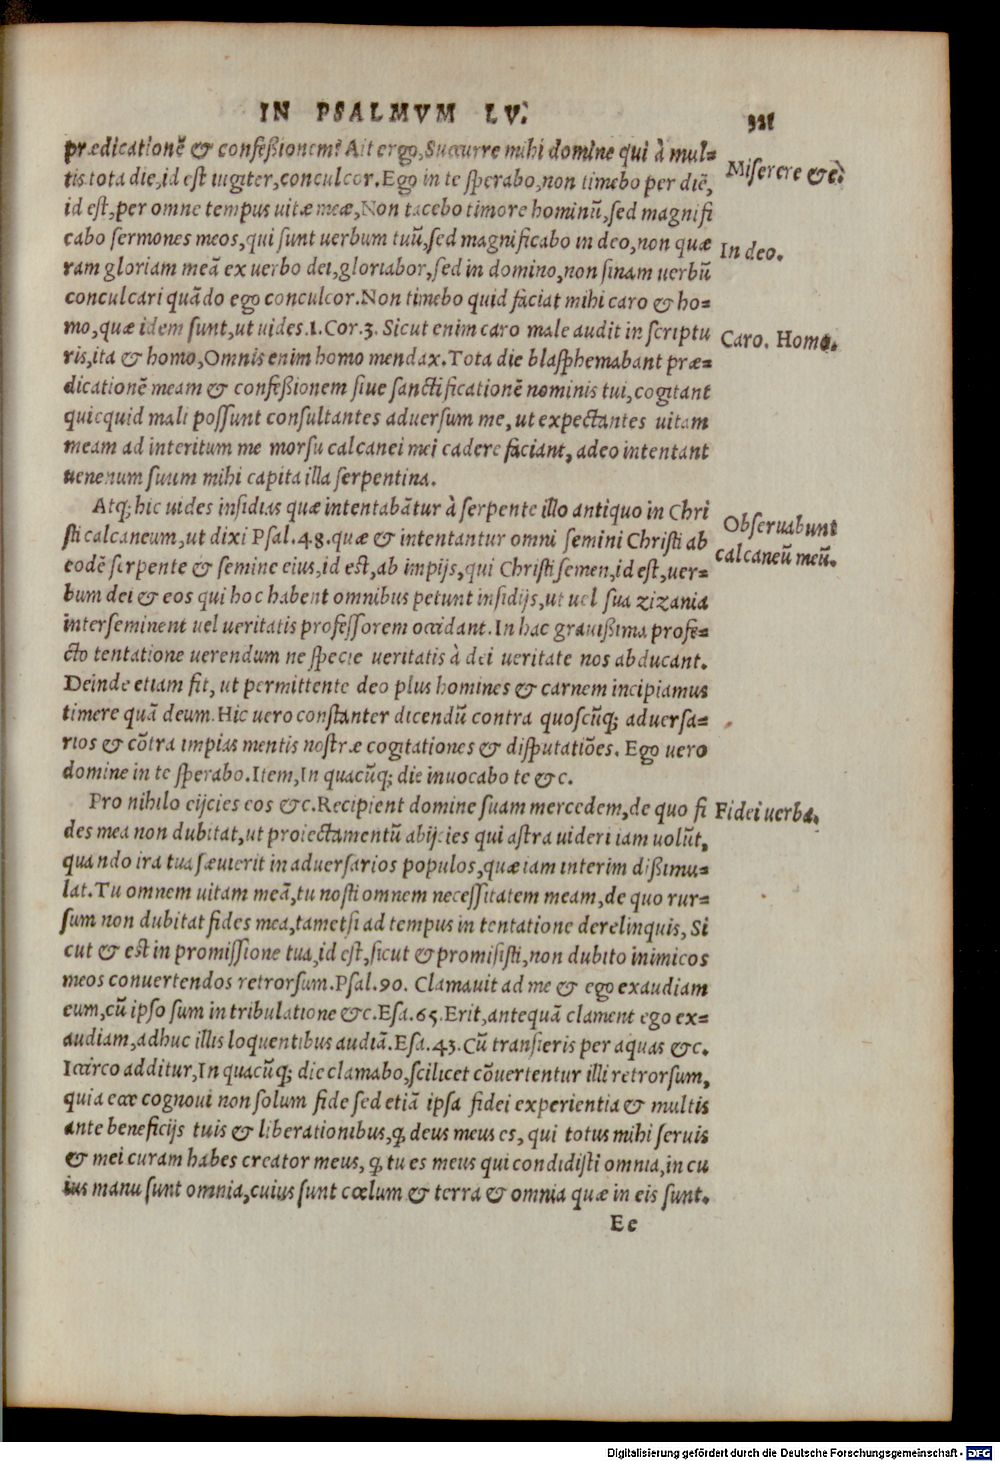 IN PSALMVM LV.
321
prædicationẽ & confeßionem? Ait ergo, Succurre mihi domine qui à mul=
tis tota die, id est iugiter, conculcor. Ego in te sperabo, non timebo per diẽ,
Miserere &c.
id est, per omne tempus uitæ meæ, Non tacebo timore hominũ, sed magnifi
cabo sermones meos, qui sunt uerbum tuũ, sed magnificabo in deo, non quæ
In deo.
ram gloriam meã ex uerbo dei, gloriabor, sed in domino, non sinam uerbũ
conculcari quãdo ego conculcor. Non timebo quid faciat mihi caro & ho=
mo, quæ idem sunt, ut uides.1. Cor. 3. Sicut enim caro male audit in scriptu
Caro. Homo.
ris, ita & homo, Omnis enim homo mendax. Tota die blasphemabant præ=
dicationẽ meam & confeßionem siue sanctificationẽ nominis tui, cogitant
quicquid mali possunt consultantes aduersum me, ut expectantes uitam
meam ad interitum me morsu calcanei mei cadere faciant, adeo intentant
uenenum suum mihi capita illa serpentina.
Atq; hic uides insidias quæ intentabãtur à serpente illo antiquo in Chri
Obseruabunt
sti calcaneum, ut dixi Psal. 48. quæ & intentantur omni semini Christi ab
calcaneũ meũ.
eodẽ serpente & semine eius, id est, ab impijs, qui Christi semen, id est, uer=
bum dei & eos qui hoc habent omnibus petunt insidijs, ut uel sua zizania
interseminent uel ueritatis professorem occidant. In hac grauißima profe=
cto tentatione uerendum ne specie ueritatis à dei ueritate nos abducant.
Deinde etiam fit, ut permittente deo plus homines & carnem incipiamus
timere quã deum. Hic uero constanter dicendũ contra quoscũq; aduersa=
rios & cõtra impias mentis nostræ cogitationes & disputatiões. Ego uero
domine in te sperabo. Item, In quacũq; die inuocabo te &c.
Pro nihilo eijcies eos &c. Recipient domine suam mercedem, de quo fi
Fidei uerba.
des mea non dubitat, ut proiectamentũ abijcies qui astra uideri iam uolũt,
quando ira tua sæuierit in aduersarios populos, quæ iam interim dißimu=
lat. Tu omnem uitam meã, tu nosti omnem necessitatem meam, de quo rur=
sum non dubitat fides mea, tametsi ad tempus in tentatione derelinquis, Si
cut & est in promissione tua, id est, sicut & promisisti, non dubito inimicos
meos conuertendos retrorsum. Psal. 90. Clamauit ad me & ego exaudiam
eum, cũ ipso sum in tribulatione &c. Esa. 65. Erit, antequã clament ego ex=
audiam, adhuc illis loquentibus audiã. Esa. 43. Cũ transieris per aquas &c.
Iccirco additur, In quacũq; die clamabo, scilicet cõuertentur illi retrorsum,
quia ecce cognoui non solum fide sed etiã ipsa fidei experientia & multis
ante beneficijs tuis & liberationibus, ꝙ deus meus es, qui totus mihi seruis
& mei curam habes creator meus, ꝙ tu es meus qui condidisti omnia, in cu
ius manu sunt omnia, cuius sunt cœlum & terra & omnia quæ in eis sunt.
Ee
Digitalisierung gefördert durch die Deutsche Forschungsgemeinschaft - DFG